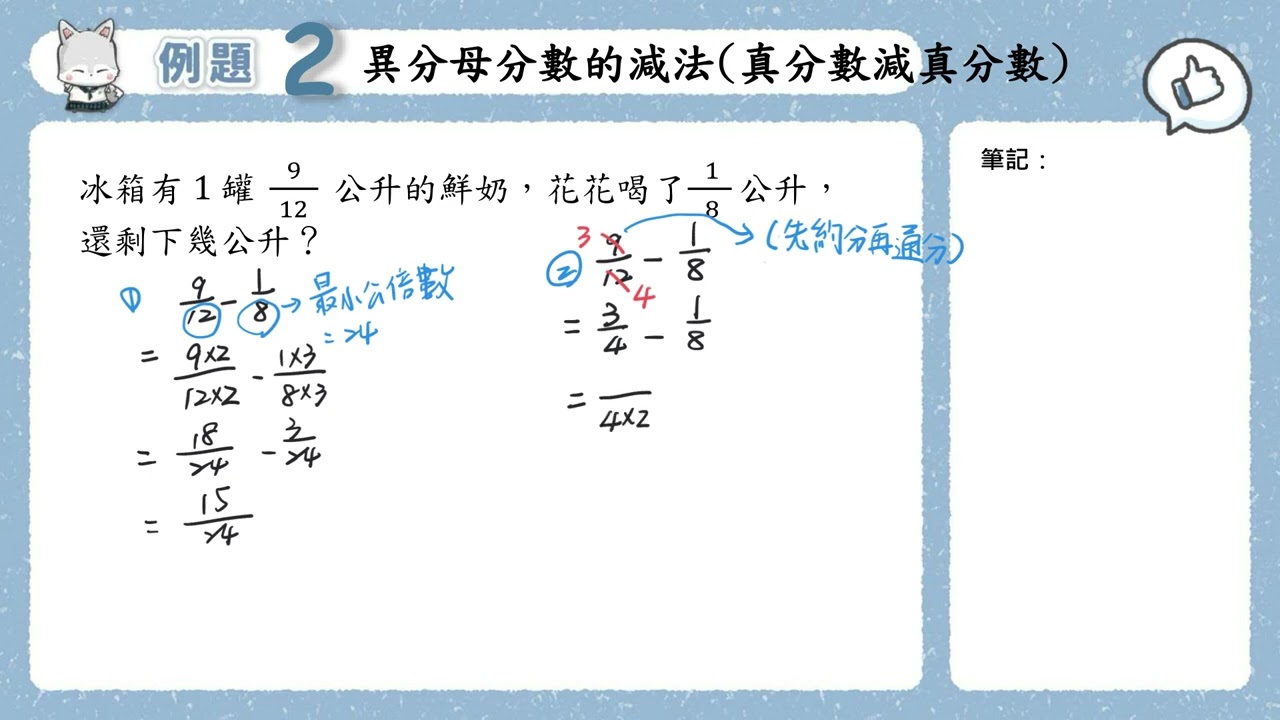 例題 2 異分母分數的減法(真分數減真分數)
冰箱有1罐 9/12 公升的鮮奶，花花喝了 1/8 公升，
還剩下幾公升？
① 9/12 - 1/8 → 最小公倍數
= 24
= 9×2/12×2 - 1×3/8×3
= 18/24 - 3/24
= 15/24
② 9/12 - 1/8 → (先約分再通分)
3
4
= 3/4 - 1/8
= /4×2
筆記：